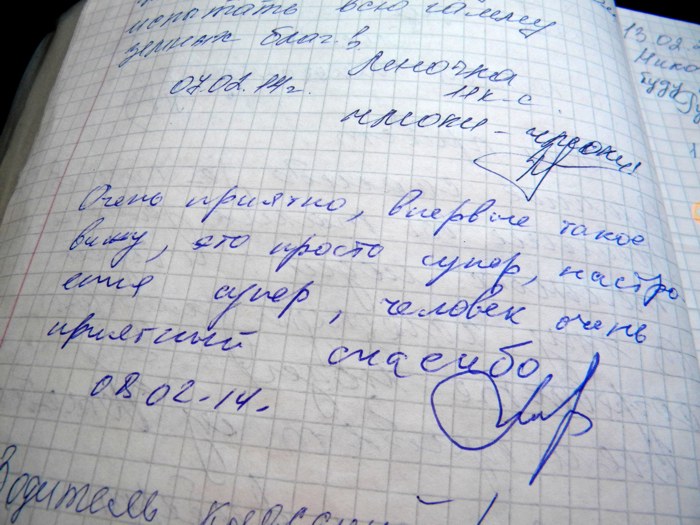 испытать всю гамму
земных благ.
Леночка
07.02.14г.
чмоки - чмоки!
Очень приятно, впервые такое
вижу, это просто супер, настро
ения супер, человек очень
приятный спасибо
08.02.14.
Водитель классный!
13.02
Буду